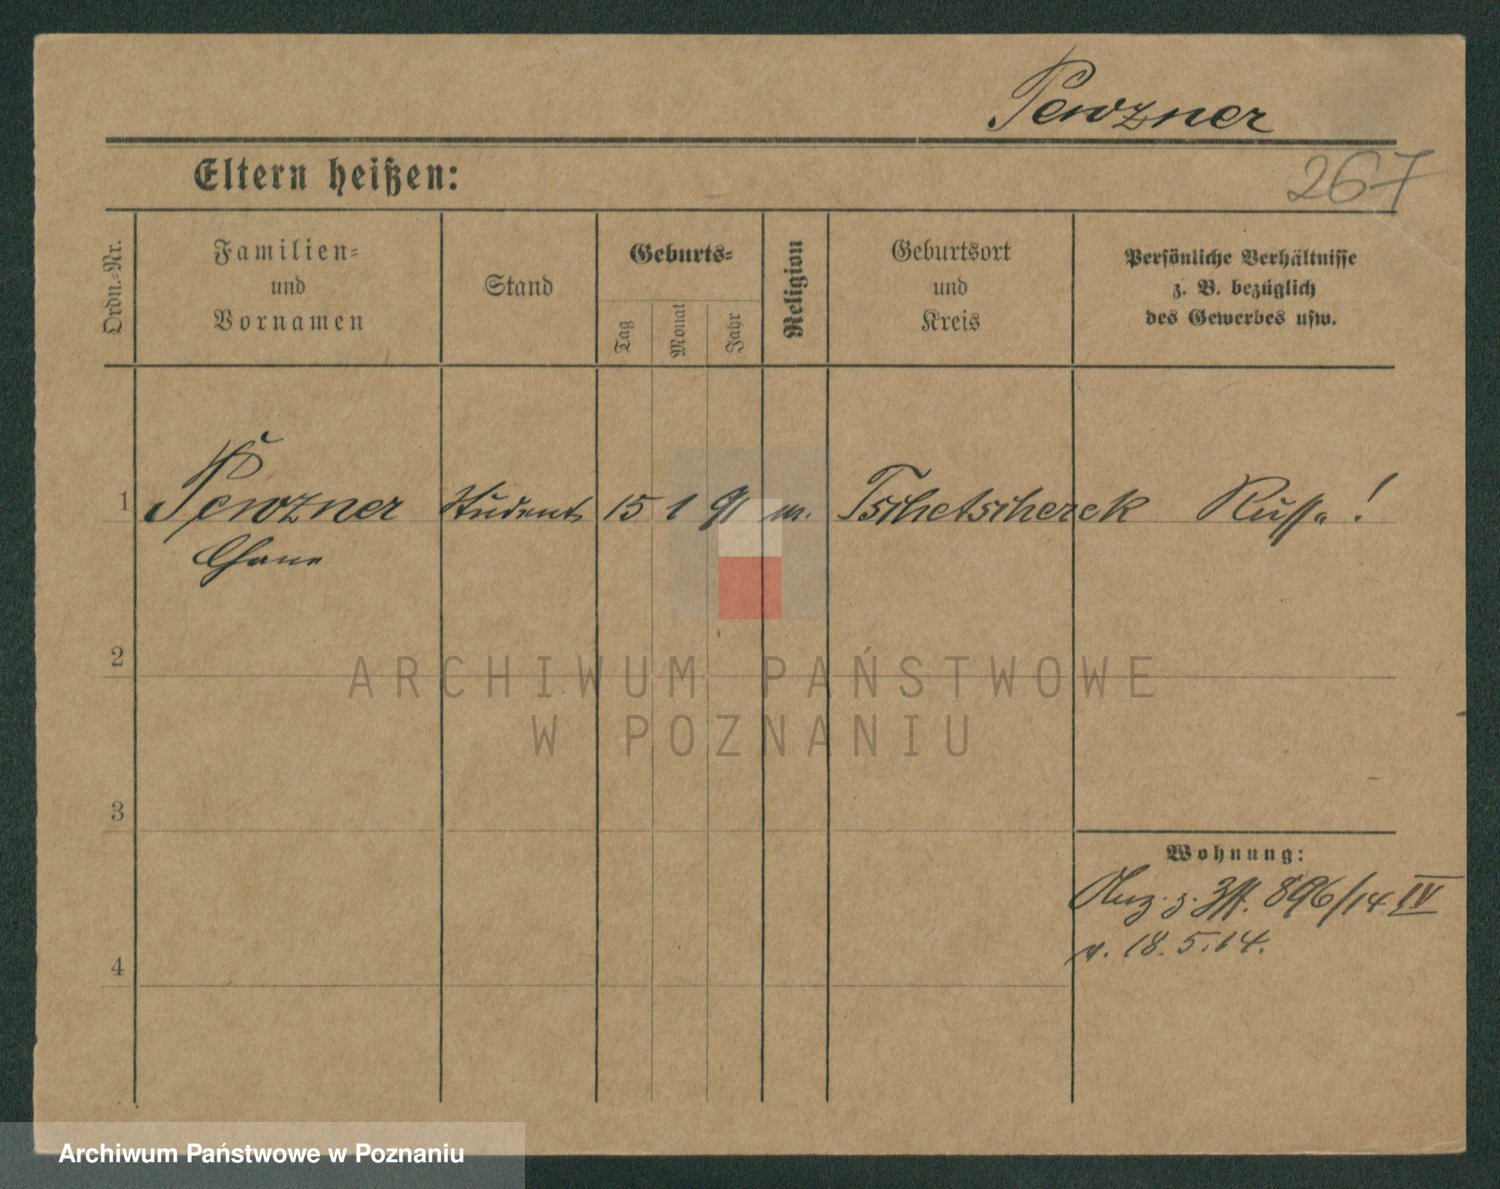 Pewzner
267
Eltern heißen:
Ordn.-Nr.
Familien-
und
Vornamen
Stand
Geburts-
Tag
Monat
Jahr
Religion
Geburtsort
und
Kreis
Persönliche Verhältnisse
z. B. bezüglich
des Gewerbes usw.
1 Pewzner Student 15 1 91 m. Tschetscherek Russe!
2
ARCHIWUM PAŃSTWOWE
W POZNANIU
3
Wohnung:
896/14 IV
v. 18.5.14.
4
Archiwum Państwowe w Poznaniu